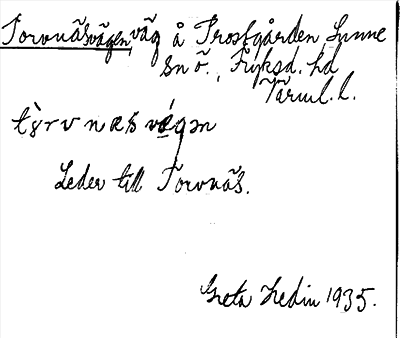 Torvnäsvägen väg å Prostgården, Sunne
sn ö., Fryksd. hd
Värml. l.
tòrvnæsvé̜gən
Leder till Torvnäs.
Greta Hedin 1935.